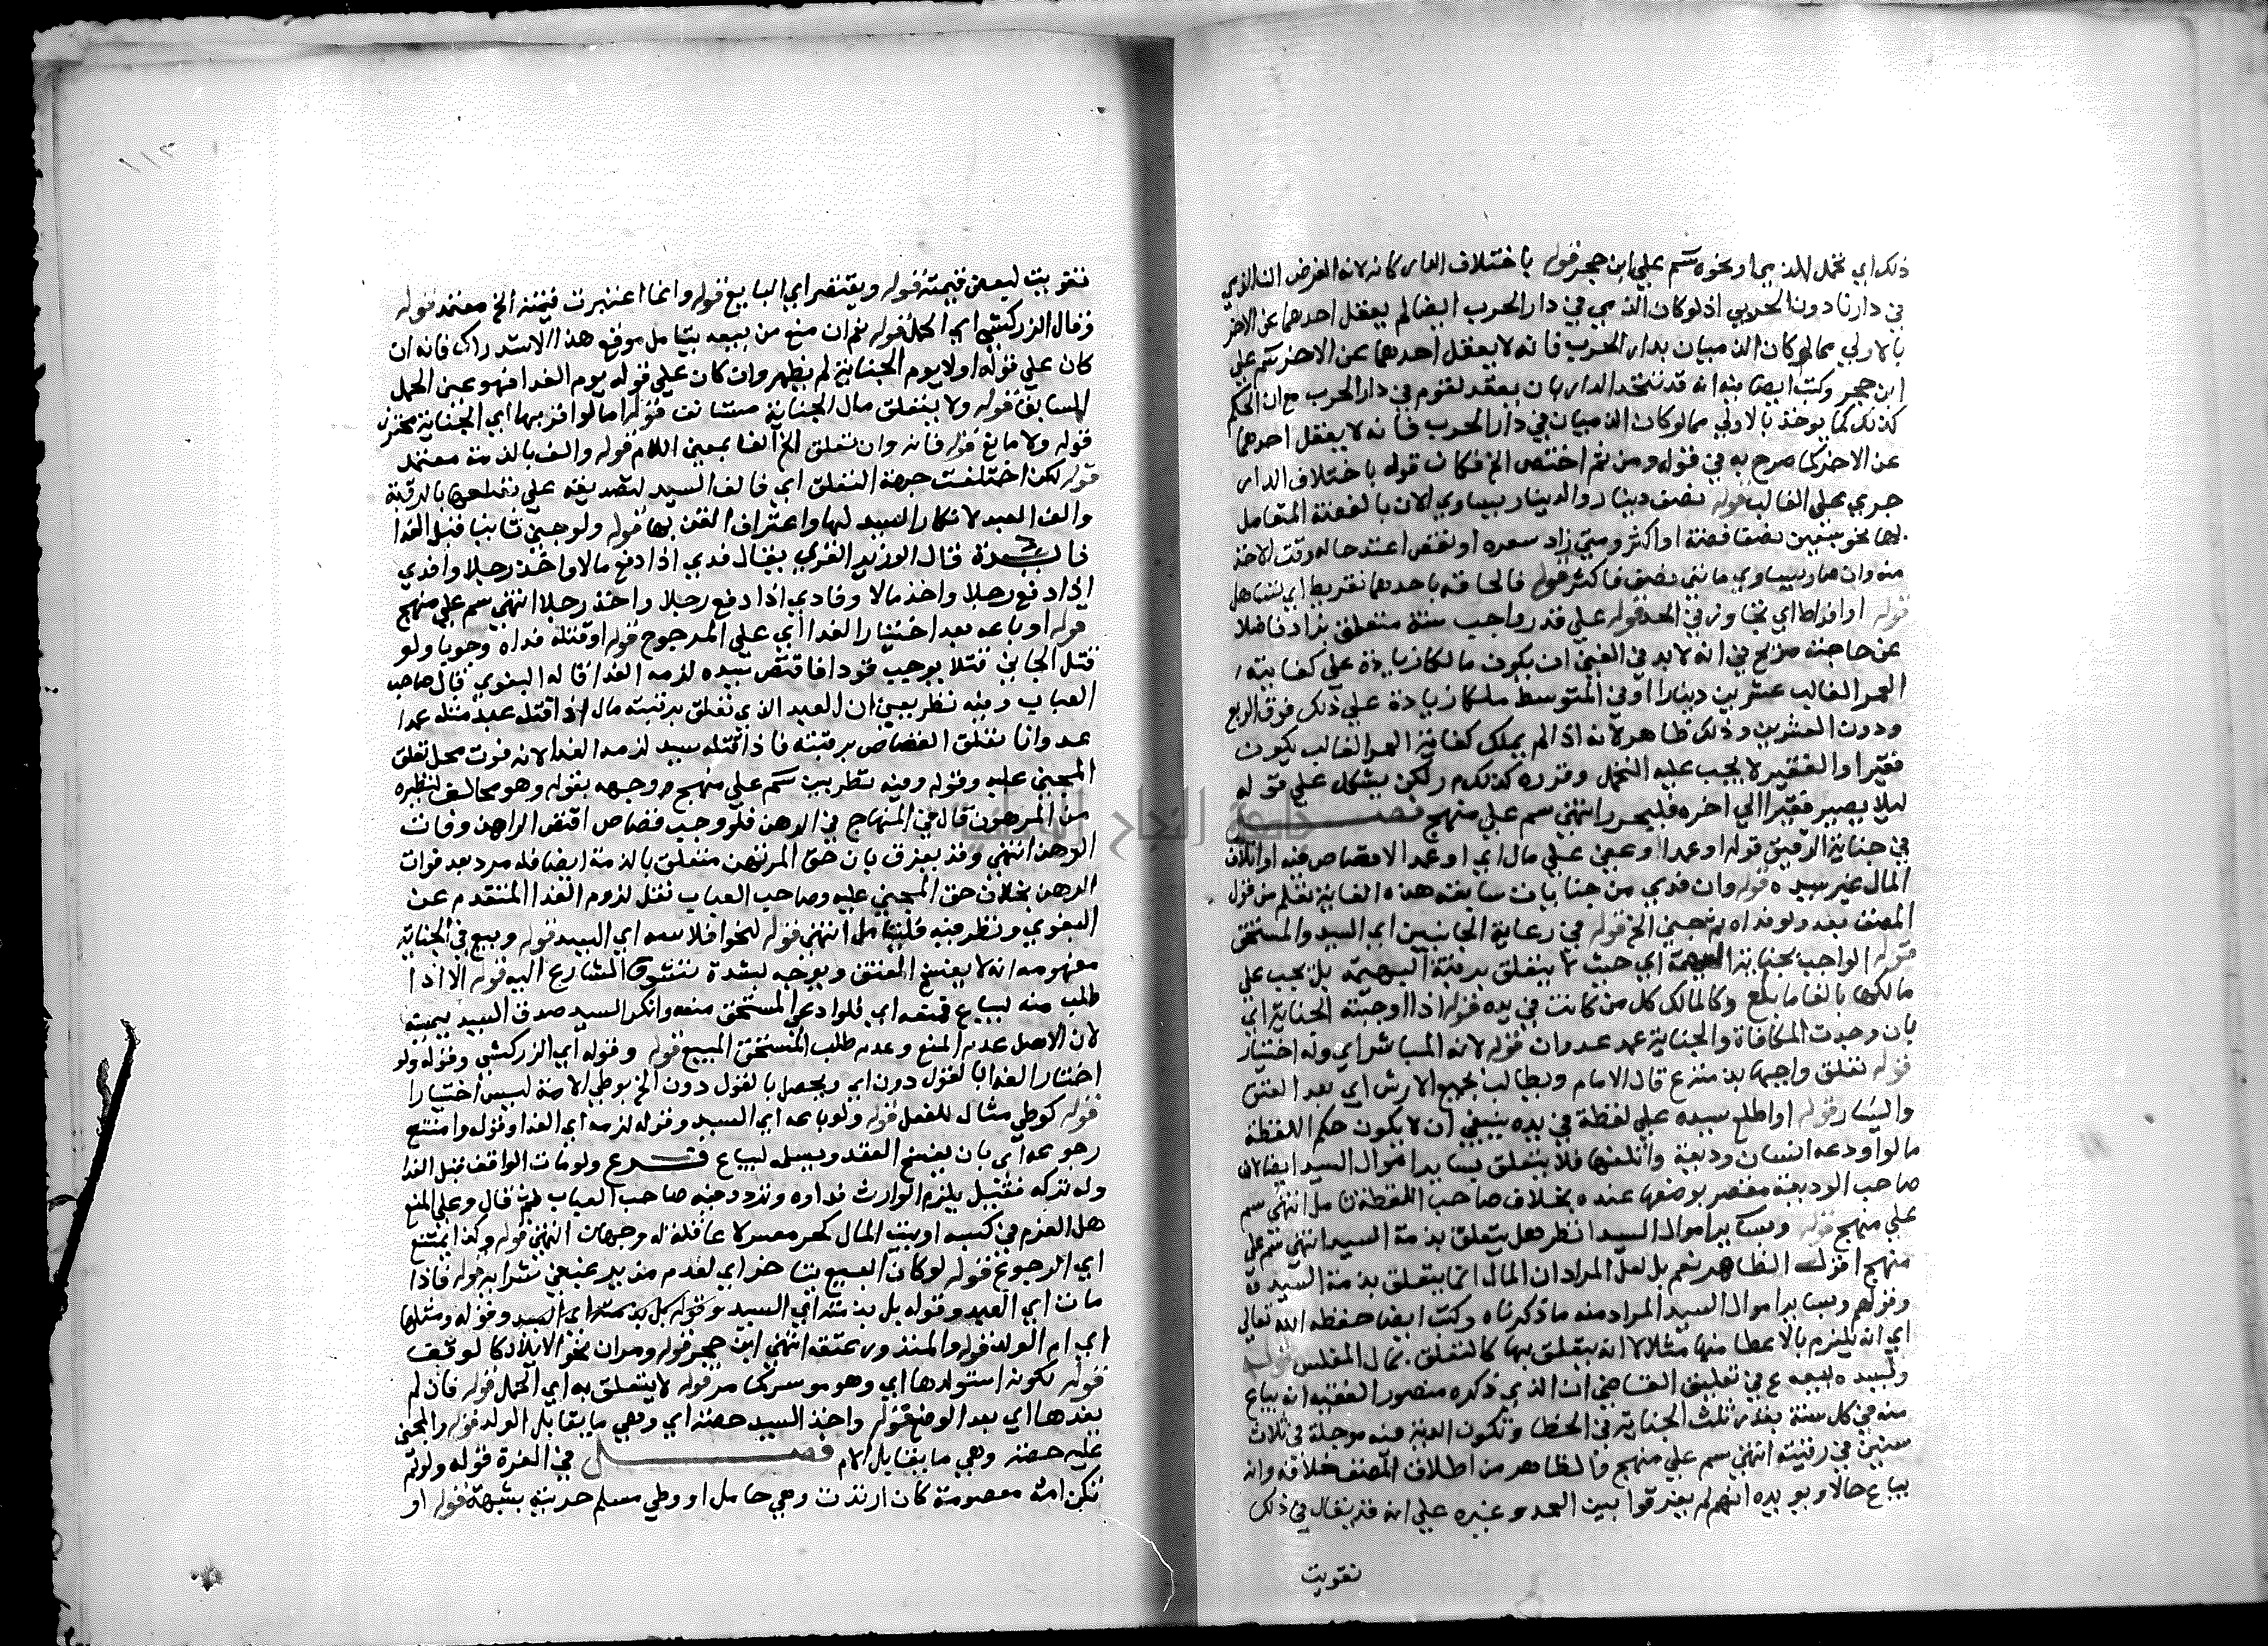 ذلك اي تحمل الذمي او نحوه سم علي ابن حجر قوله باختلاف الدار كانه لانه الغرض اذ الذمي
في دارنا دون الحربي اذ لو كان الذمي في دار الحرب ايضا لم يعقل احدهما عن الاخر
بالاولي مما لو كان الذميان بدار الحرب فانه لا يعقل احدهما عن الاخر سم علي
ابن حجر وكتب ايضا فيه انه قد تتحد الداران بعقد لقوم في دار الحرب مع ان الحكم
كذلك كما يوخذ بالاولي مما لو كان الذميان في دار الحرب فانه لا يعقل احدهما
عن الاخر كما صرح به في قوله ومن ثم اختص الخ فكان قوله باختلاف الدار
جري علي الغالب قوله نصف دينار والدينار يساوي الان بالفضة المتعامل
بها نحو سبعين نصفا فضة او اكثر ومتي زاد سعره او نقص اعتبر حاله وقت الاخذ
منه وان صار يساوي مايتي نصف فاكثر قوله فالحاقه باحدهما تفريط اي تساهل
قوله او افراط اي تجاوز في الحد قوله علي قدر واجب سنة متعلق بزاد فاضلا
عن حاجته صريح في انه لا بد في الغني ان يكون مالكا زيادة علي كفايته
العمر الغالب عشرين دينارا او في المتوسط ملكا زيادة علي ذلك فوق الربع
ودون العشرين وذلك ظاهر لانه اذا لم يملك كفاية العمر الغالب يكون
فقيرا والفقير لا يجب عليه التحمل وقرره كذلك م ر لكن يشكل علي قوله
ليلا يصير فقيرا الي اخره فليحرر انتهي سم علي منهج فصل
في جناية الرقيق قوله او عمدا وعفي علي مال اي او عمدا لا قصاص فيه او اتلاف
المال غير سيده قوله وان فدي من جنايات سابقة هذه الغاية تعلم من قول
المصنف بعد ولو فداه ثم جني الخ قوله في رعاية الجانبين اي السيد والمستحق
قوله الواجب بجناية البهيمة اي حيث لا يتعلق برقبة البهيمة بل يجب علي
مالكها بالغا ما بلغ وكالمالك كل من كانت في يده قوله اذا اوجبته الجناية اي
بان وجدت المكافاة والجناية عمد عدوان قوله لانه المباشر اي وله اختيار
قوله تعلق واجبها بمتنزع قال الامام ويطالب بجميع الارش اي بعد العتق
واليسار قوله او اطلع سيده علي لقطة في يده ينبغي ان لا يكون حكم اللقطة
ما لو اودعه انسان وديعة واتلفها فلا يتعلق بساير اموال السيد ايضا لان
صاحب الوديعة مقصر بوضعها عنده بخلاف صاحب اللقطة تامل انتهي سم
علي منهج قوله وبساير اموال السيد انظر هل يتعلق بذمة السيد انتهي سم علي
منهج اقول الظاهر نعم بل لعل المراد ان المال انما يتعلق بذمة السيد
وقولهم وبساير اموال السيد المراد منه ما ذكرناه وكتب ايضا حفظه الله تعالي
اي انه يلزم بالاعطا منها مثلا لا انه يتعلق بها كالتعلق بمال المفلس قوله
ولسيده بيعه ع في تعليق القاضي ان الذي ذكره منصور الفقيه انه يباع
منه في كل سنة بقدر ثلث الجناية في الخطا وتكون الدية فيه موجلة في ثلاث
سنين في رقبته انتهي سم علي منهج فالظاهر من اطلاق المصنف خلافه وانه
يباع حالا ويويده انهم لم يفرقوا بين العمد وغيره علي انه قد يقال في ذلك
تفويت
تفويت لبعض قيمته قوله ويقتصر اي البايع قوله وانما اعتبرت قيمته الخ معتمد قوله
وقال الزركشي اي الحمل قوله نعم ان منع من بيعه يتامل موقع هذا الاستدراك فانه ان
كان علي قوله اولا يوم الجناية لم يظهر وان كان علي قوله يوم الفدا فهو عين الحمل
السابق قوله ولا يتعلق مال الجناية قوله اما لو اقر بها اي الجناية محترز
قوله ولا مانع قوله فانه وان تعلق الخ الفا بمعني اللام قوله والف بالذمة معتمد
قوله لكن اختلفت جهة التعلق اي فالف السيد لتصديقه علي تعلقها بالرقبة
والف العبد لانكار السيد لها واعتراف القن بها قوله ولو جني ثانيا قبل الفدا
فايدة قال الوزير الغزي يقال فدي اذا دفع مالا واخذ رجلا وافدي
اذا دفع رجلا واخذ مالا وفادي اذا دفع رجلا واخذ رجلا انتهي سم علي منهج
قوله او باعه بعد اختيار الفدا اي علي المرجوح قوله او قتله فداه وجوبا ولو
قتل الجاني قتلا يوجب قودا فاقتص سيده لزمه الفدا قاله البغوي قال صاحب
العباب وفيه نظر يعني ان العبد الذي تعلق برقبته مال اذا قتله عبد مثله عمدا
عدوانا تعلق القصاص برقبته فاذا قتله سيد لزمه الفدا لانه فوت محل تعلق
المجني عليه وقوله وفيه نظر يبت سم علي منهج ووجهه بقوله وهو مخالف لنظيره
من المرهون قال في المنهاج في الرهن فلو وجب قصاص اقتص الراهن وفات
الرهن انتهي وقد يفرق بان حق المرتهن متعلق بالذمة ايضا فله مرد بعد فوات
الرهن بخلاف حق المجني عليه وصاحب العباب نقل لزوم الفدا المتقدم عن
البغوي ونظر فيه فليتامل انتهي قوله لنحو افلاسه اي السيد قوله وبيع في الجناية
مفهومه انه لا يفسخ العتق ويوجه بشدة تشوف الشارع اليه قوله الا اذا
طلب منه ليباع فمنعه اي فلو ادعي المستحق منعه وانكر السيد صدق السيد بيمينه
لان الاصل عدم المنع وعدم طلب المستحق المبيع قوله وقوله اي الزركشي وقوله ولو
اختار الفدا بالقول دون اي ويحصل بالقول دون الخ بوطي الامة ليس اختيارا
قوله كوطي مثال للفعل قوله ولو باعه اي السيد وقوله لزمه اي الفدا وقوله وامتنع
رجوعه اي بان يفسخ العقد ويسلمه ليباع فرع ولو مات الواقف قبل الفدا
وله تركه فقيل يلزم الوارث فداوه وتردد فيه صاحب العباب ثم قال وعلي المنع
هل الغرم في كسبه او بيت المال كحر معسر لا عاقلة له وجهان انتهي قوله وكذا يمتنع
اي الرجوع قوله لو كان البيع يتاخر اي لعدم من يرغب في شرايه قوله فاذا
مات اي العبد وقوله بل بذمته اي السيد وقوله بل بذمته اي السيد وقوله ومثلها
اي ام الولد قوله والمنذور عتقه انتهي ابن حجر قوله ومران نحو الايلاد كالوقف
قوله بكونه استولدها اي وهو موسر كما مر قوله لا يتعلق به اي الحمل قوله فان لم
يفدها اي بعد الوضع قوله واخذ السيد حصته اي وهي ما يقابل الولد قوله والمجني
عليه حصته وهي ما يقابل الام فصل في الغرة قوله ولو لم
تكن امه معصومة كان ارتدت وهي حامل او وطي مسلم حربية بشبهة قوله او